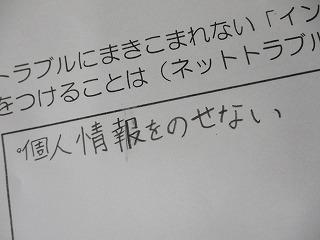 トラブルにまきこまれない「イン
をつけることは（ネットトラブル
・個人情報をのせない